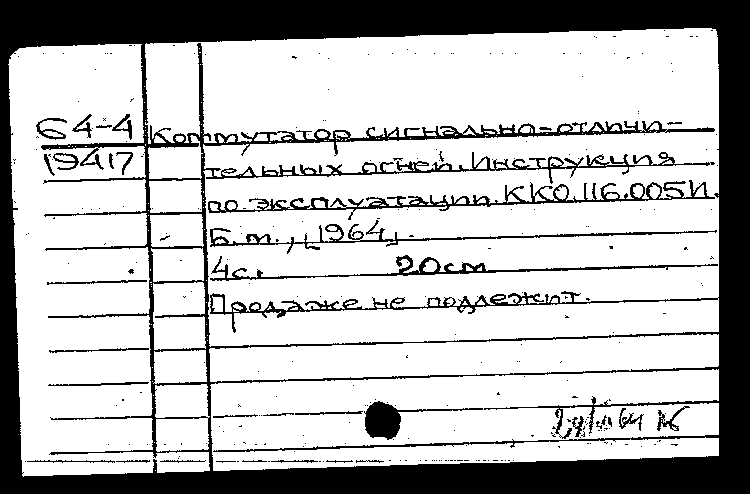 64-4 Коммутатор сигнально-отличи-
19417 тельных огней. Инструкция
по эксплуатации. ККО.116.005И.
Б.м., [1964].
4с. 20см
Продаже не подлежит.
64